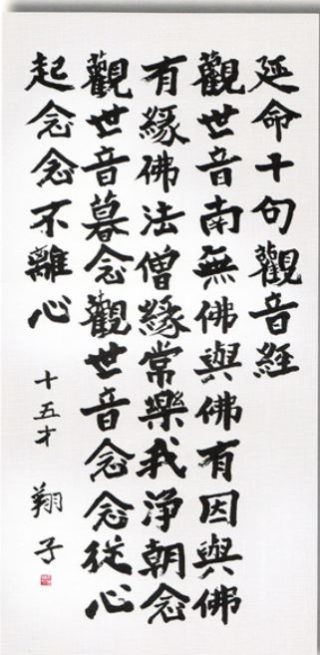 延命十句觀音經
觀世音南無佛與佛有因與佛
有緣佛法僧緣常樂我淨朝念
觀世音暮念觀世音念念從心
起念念不離心
十五才 翔子